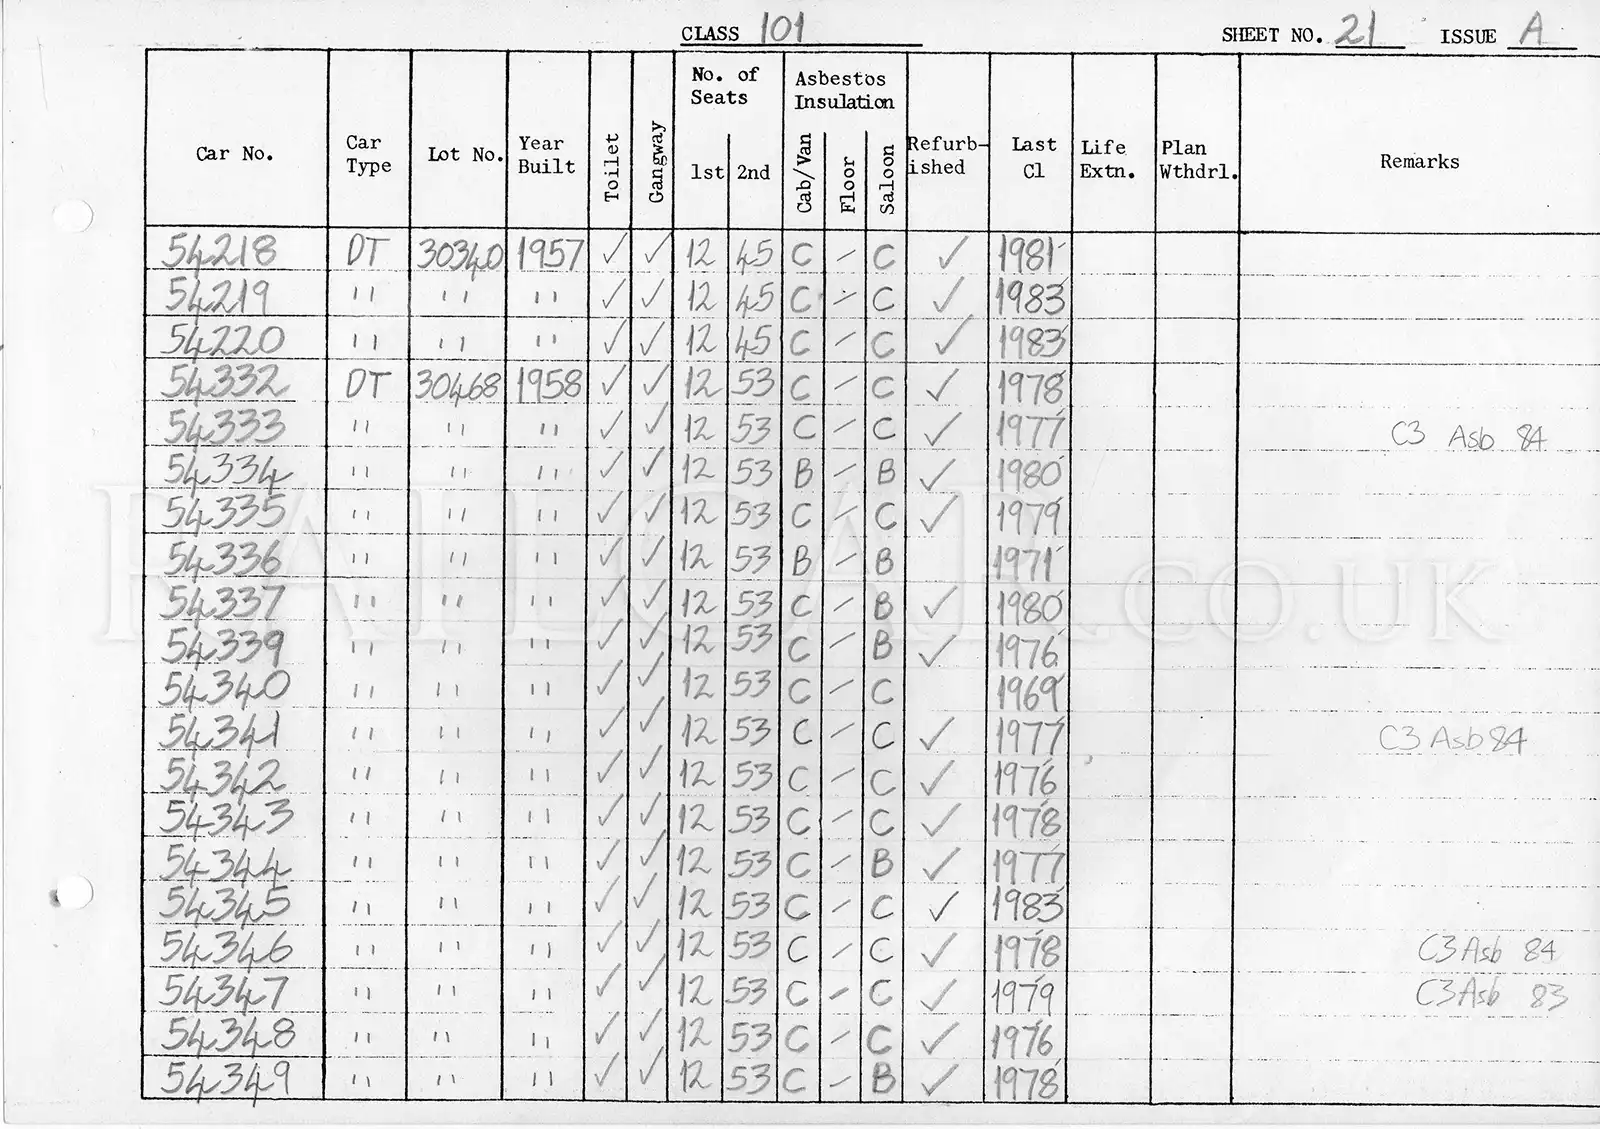 CLASS 101 SHEET NO. 21 ISSUE A
Car No. Car Type Lot No. Year Built Toilet Gangway No. of Seats 1st 2nd Asbestos Insulation Cab/Van Floor Saloon Refurb-ished Last Cl Life Extn. Plan Wthdrl. Remarks
54218 DT 30340 1957 ✓ ✓ 12 45 C – C ✓ 1981
54219 " " " ✓ ✓ 12 45 C – C ✓ 1983
54220 " " " ✓ ✓ 12 45 C – C ✓ 1983
54332 DT 30468 1958 ✓ ✓ 12 53 C – C ✓ 1978
54333 " " " ✓ ✓ 12 53 C – C ✓ 1977 C3 Asb 84
54334 " " " ✓ ✓ 12 53 B – B ✓ 1980
54335 " " " ✓ ✓ 12 53 C – C ✓ 1979
54336 " " " ✓ ✓ 12 53 B – B 1971
54337 " " " ✓ ✓ 12 53 C – B ✓ 1980
54339 " " " ✓ ✓ 12 53 C – B ✓ 1976
54340 " " " ✓ ✓ 12 53 C – C 1969
54341 " " " ✓ ✓ 12 53 C – C ✓ 1977 C3 Asb 84
54342 " " " ✓ ✓ 12 53 C – C ✓ 1976
54343 " " " ✓ ✓ 12 53 C – C ✓ 1978
54344 " " " ✓ ✓ 12 53 C – B ✓ 1977
54345 " " " ✓ ✓ 12 53 C – C ✓ 1983
54346 " " " ✓ ✓ 12 53 C – C ✓ 1978 C3 Asb 84
54347 " " " ✓ ✓ 12 53 C – C ✓ 1979 C3 Asb 83
54348 " " " ✓ ✓ 12 53 C – C ✓ 1976
54349 " " " ✓ ✓ 12 53 C – B ✓ 1978
RAILCAR.CO.UK